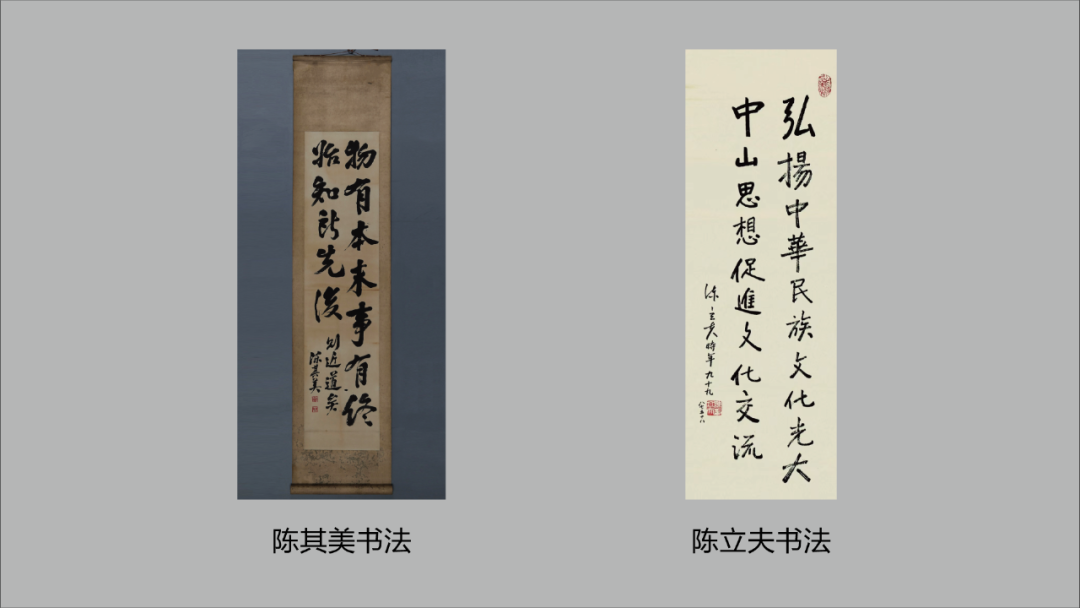 物有本末事有終
始知所先後
則近道矣
陳其美
弘揚中華民族文化光大
中山思想促進文化交流
陳立夫時年九十九
陈其美书法
陈立夫书法